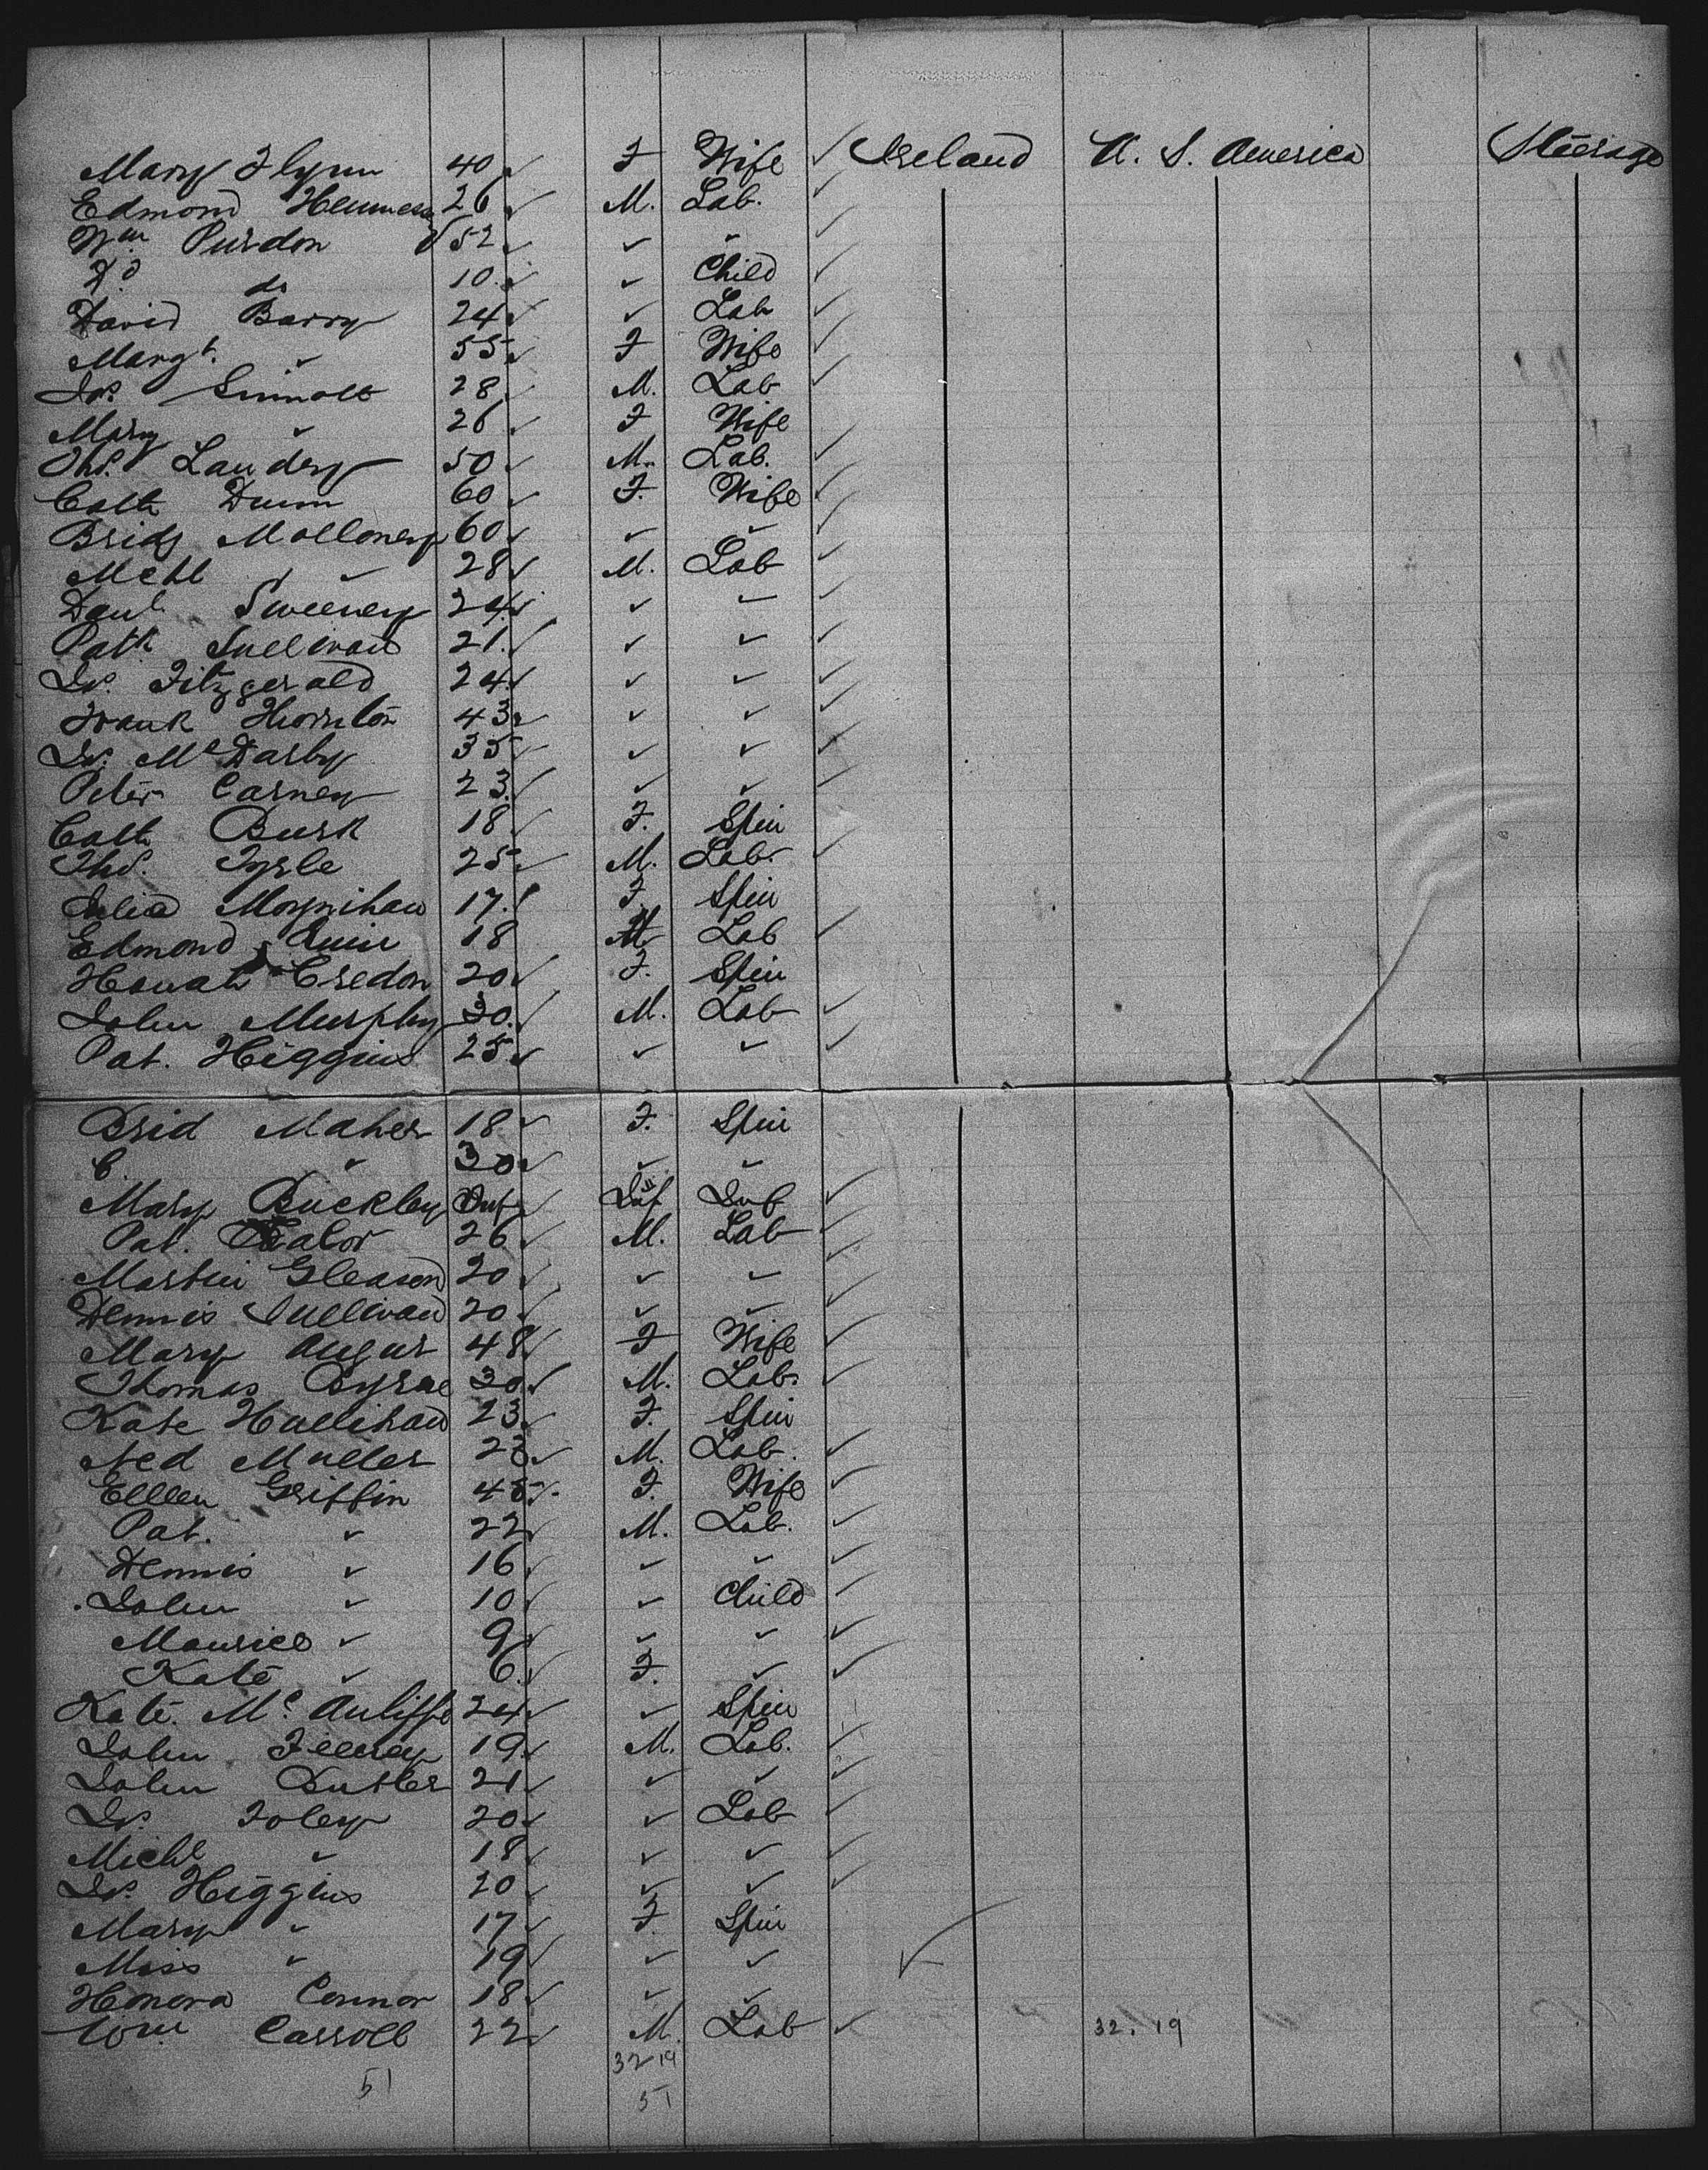 Mary Flynn 40 ✓ F Wife ✓ Ireland U. S. America Steerage
Edmond Hennessy 26 ✓ M. Lab. ✓
Wm Purdon 52 ✓ ✓ ✓ ✓
Do do 10 ✓ ✓ Child ✓
David Barry 24 ✓ ✓ Lab ✓
Margt. ✓ 55 ✓ F Wife ✓
Jas. Sinnott 28 ✓ M. Lab ✓
Mary ✓ 26 ✓ F Wife
Thos. Landery 50 ✓ M. Lab. ✓
Cath Dunn 60 ✓ F. Wife ✓
Bridg Molloney 60 ✓ ✓ ✓ ✓
Mchl ✓ 28 ✓ M. Lab ✓
Danl. Sweeney 24 ✓ ✓ ✓ ✓
Patk Sullivan 21. ✓ ✓ ✓ ✓
Js. Fitzgerald 24 ✓ ✓ ✓ ✓
Frank Thornton 43 ✓ ✓ ✓ ✓
Js. McDarby 35 ✓ ✓ ✓ ✓
Peter Carney 23. ✓ ✓ ✓ ✓
Cath Burk 18 ✓ F. Spin
Thos. Tyrle 25 ✓ M. Lab. ✓
Julia Moynihan 17. ✓ F. Spin
Edmond Quin 18 M Lab ✓
Hanah Credon 20 ✓ F. Spin
John Murphy 30. ✓ M. Lab ✓
Pat. Higgins 25 ✓ ✓ ✓ ✓
Brid Maher 18 ✓ F. Spin
C. ✓ 30 ✓ ✓ ✓
Mary Buckley Inf ✓ Inf Inf ✓
Pat. Lalor 26 ✓ M. Lab ✓
Martin Gleason 20 ✓ ✓ ✓ ✓
Dennis Sullivan 20 ✓ ✓ ✓ ✓
Mary Angus 48 ✓ F Wife ✓
Thomas Byrne 30 ✓ M. Lab. ✓
Kate Hullihan 23 ✓ F. Spin
Ned Muller 23 ✓ M. Lab. ✓
Elllen Griffin 45 ✓ F. Wife ✓
Pat. ✓ 22 ✓ M. Lab. ✓
Dennis ✓ 16 ✓ ✓ ✓ ✓
John ✓ 10 ✓ ✓ Child ✓
Maurice ✓ 9 ✓ ✓ ✓ ✓
Kate ✓ 6. ✓ F. ✓ ✓
Kate. Mc Auliffe 24 ✓ ✓ Spin
John Feeney 19 ✓ M. Lab. ✓
John Butler 21 ✓ ✓ ✓ ✓
Js. Foley 20 ✓ ✓ Lab ✓
Michl ✓ 18 ✓ ✓ ✓ ✓
Js. Higgins 20 ✓ ✓ ✓ ✓
Mary ✓ 17 ✓ F Spin
Miss ✓ 19 ✓ ✓ ✓ ✓
Honora Connor 18 ✓ ✓ ✓
Wm. Carroll 22 ✓ M. Lab ✓ 32. 19
32 19
51 51